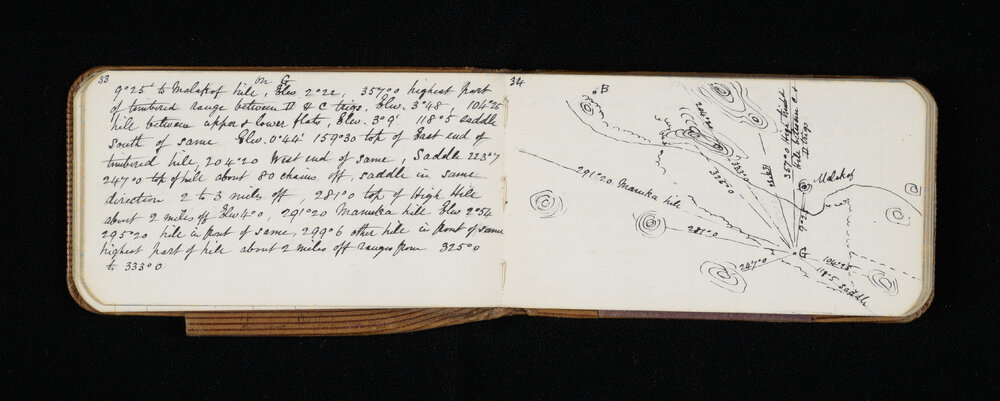 33
on G
9°25' to Malakof hill, Elev 2°22, 357°0 highest part
of timbered range between D & C trigs, Elev. 3°48, 104°25
hill between upper & lower flats, Elev. 3°9' 118°5 saddle
south of same Elev. 0°44' 159°30 top of East end of
timbered hill, 204°20 West end of same, Saddle 223°7
247°0 top of hill about 80 chains off, saddle in same
direction 2 to 3 miles off, 281°0 top of High Hill
about 2 miles off Elev 4°0, 291°20 Manuka hill Elev 2°54
295°20 hill in front of same, 299°6 other hill in front of same
highest part of hill about 2 miles off ranges from 325°0
to 333°0
34
B
291°20 Manuka hill
281°0
247°0
325°0
333°0
357°0 High timbd
hill between C &
D trigs
Malakof
9°25
G
104°25
118°5 saddle